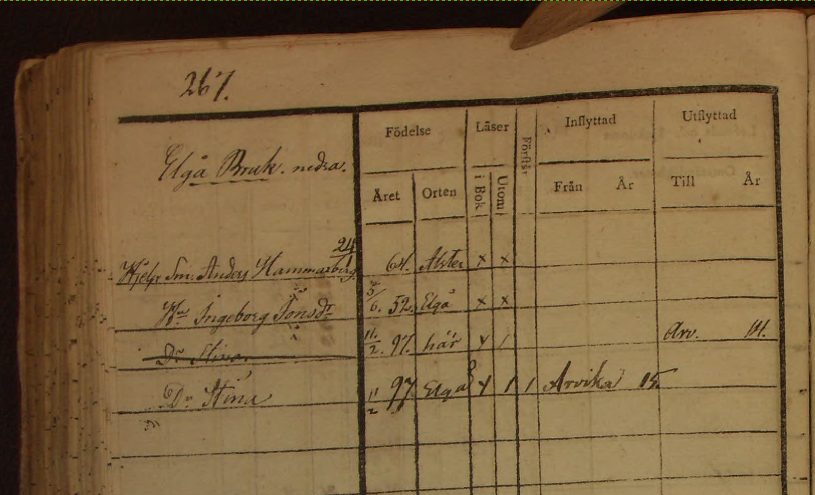 267.
Elgå Bruk. nedra.
Födelse Läser Förstår Inflyttad Utflyttad
Året Orten i Bok Utom Från År Till År
24
Hjelp Sm. Anders Hammarberg 64. Alster x x
5/6. 52. Elgå x x
Hu Ingeborg Jonsdr
11./2. 97. här x / Arv. 14.
Dr Stina
Dr Stina 11/2 97 Elgå x / / Arvika 15.